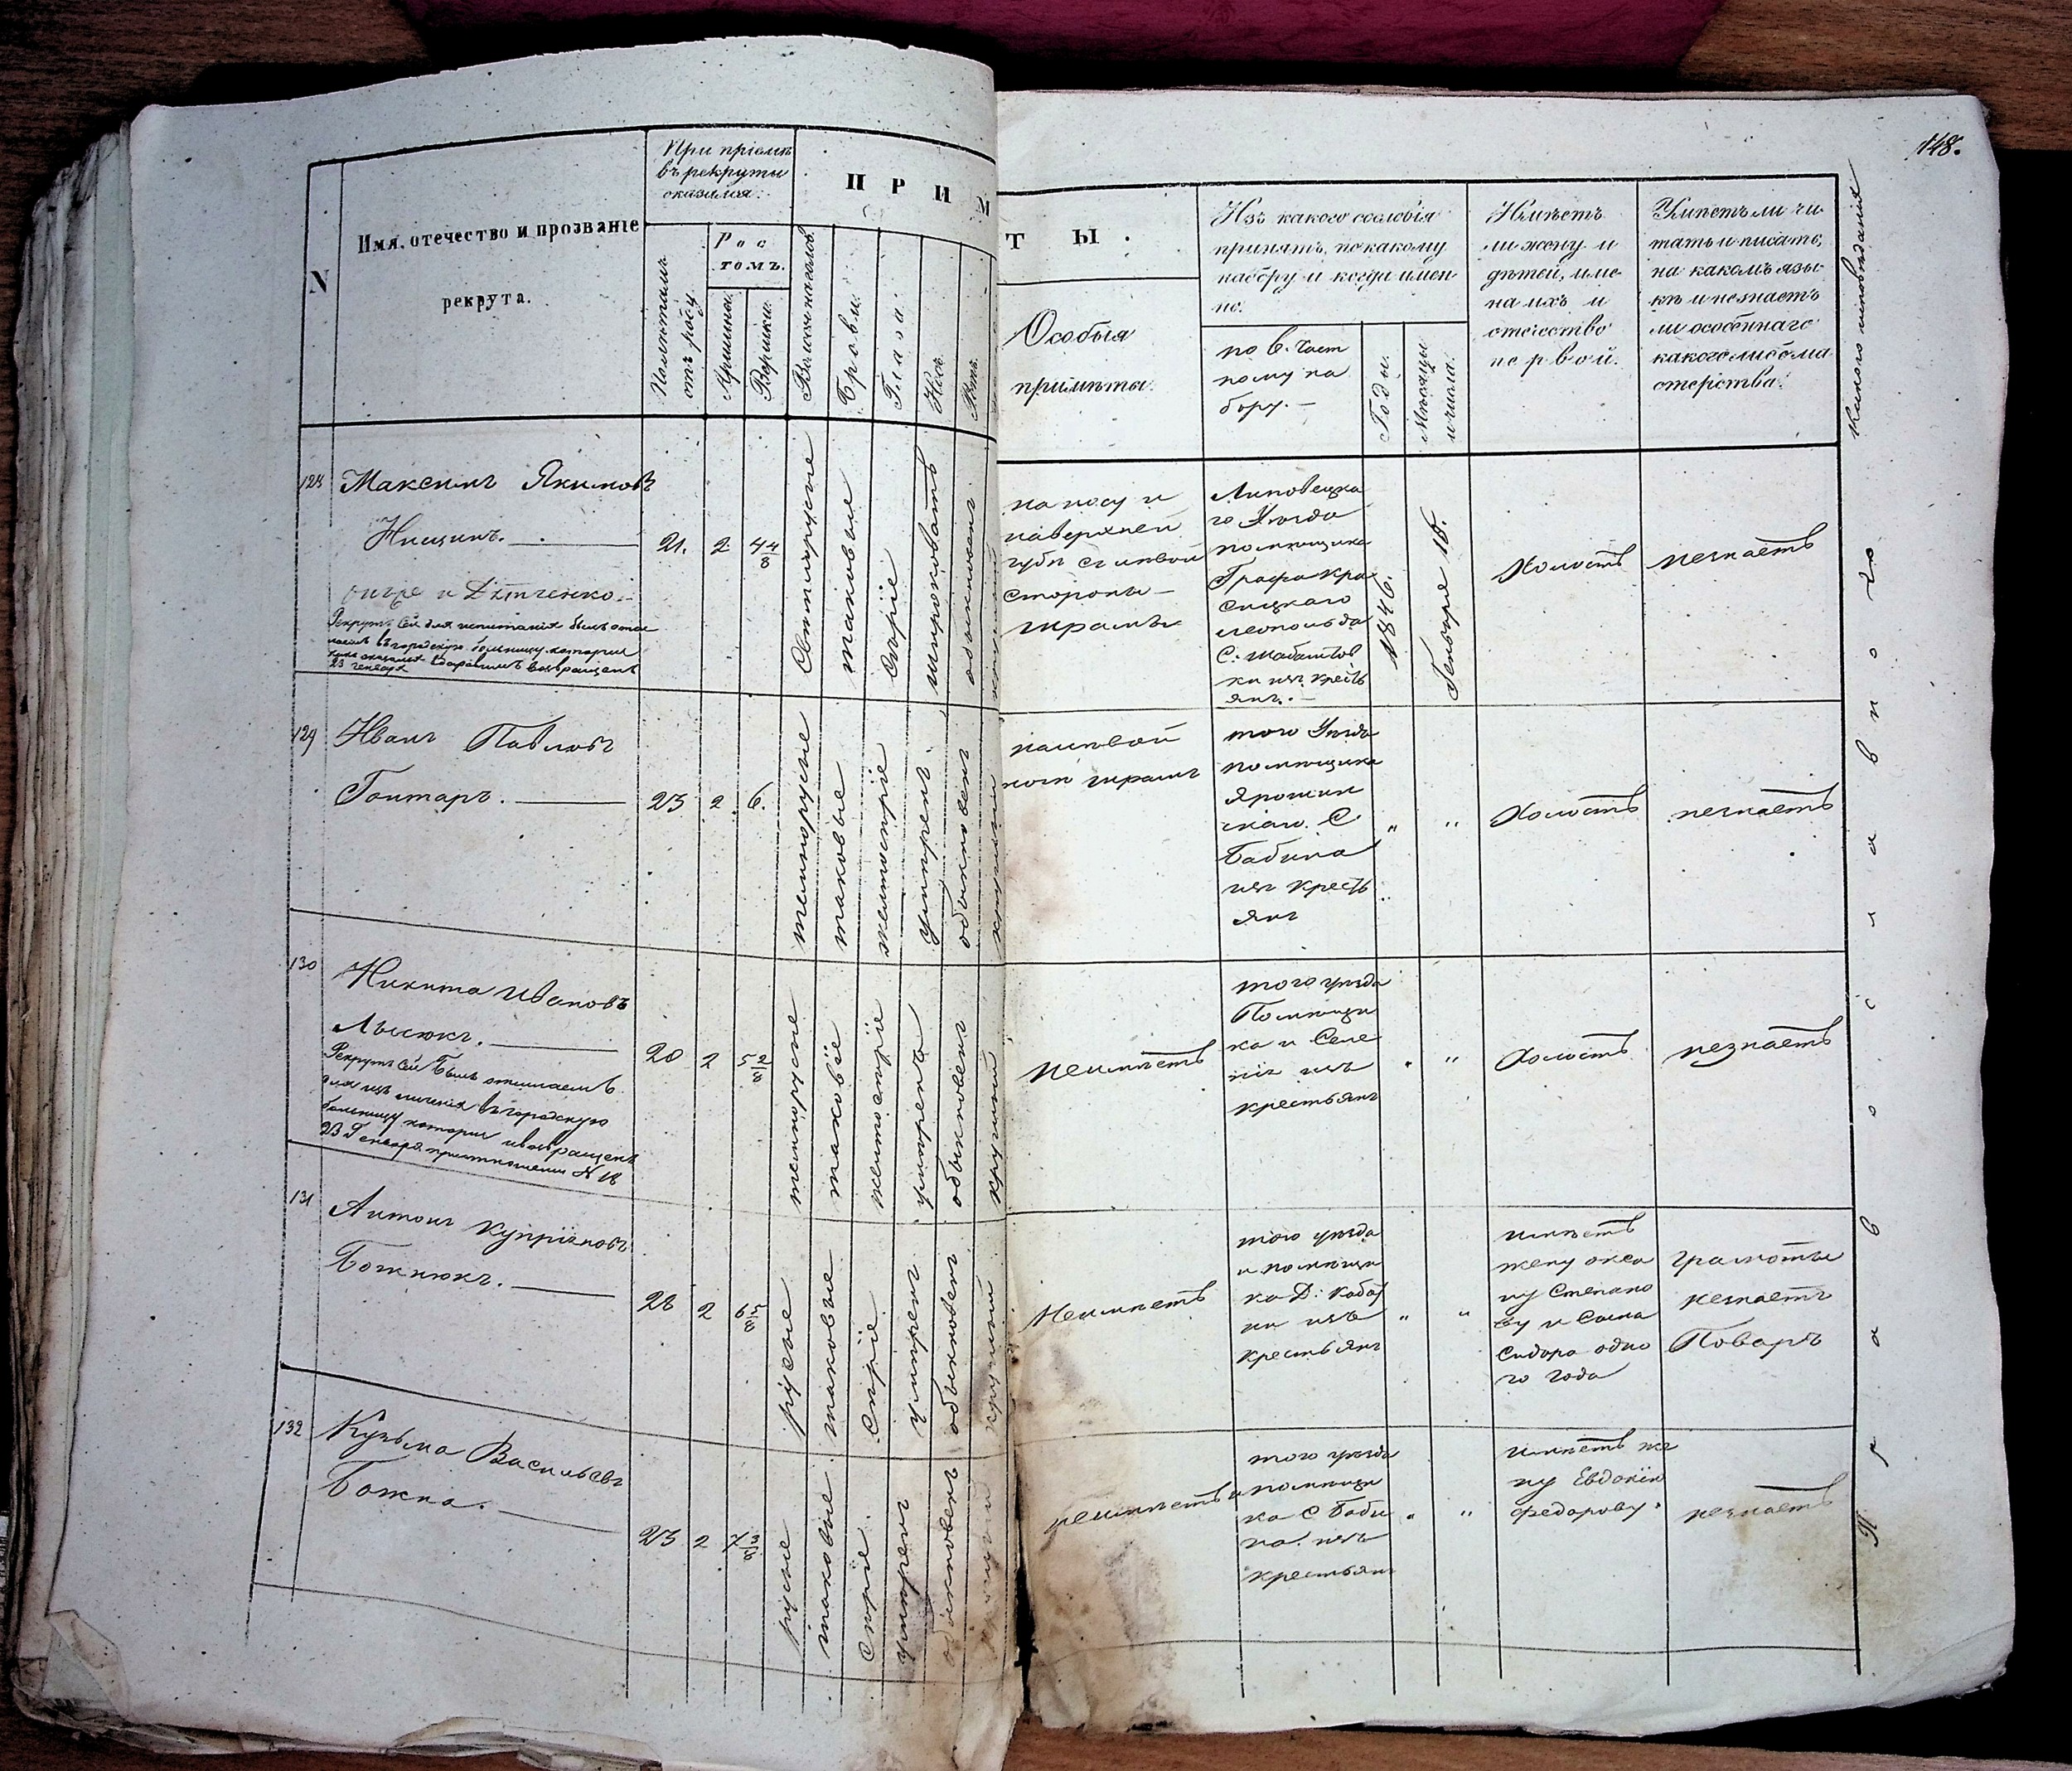 148.
N
Имя, отечество и прозваніе
рекрута.
При пріемѣ
въ рекруты
оказался:
Полѣтамъ
отъ роду
Рос
томъ.
Аршины.
Вершки.
Волосы на головѣ
Брови.
Глаза.
Носъ
Ротъ.
ПРИМ
ТЫ.
Особыя
примѣты.
Изъ какого сословія
принятъ, по какому
набору и когда имен
но.
по 6. част
ному на
бору. —
Годы.
Мѣсяцы
и числа.
Имѣетъ
ли жену и
дѣтей, име
на ихъ и
отчество
первой.
Умѣетъ ли чи
тать и писать,
на какомъ язы
кѣ и незнаетъ
ли особеннаго
какого либо ма
стерства.
Какого исповѣданія
128
Максимъ Якимовъ
Нищинъ. —
онъ же и Дѣтченко.
Рекрутъ сей для испытанія былъ отос
ланъ въ городскую больницу которы
здравымъ возвращенъ
23 генваря
21.
2
4 4/8
свѣтлорусые
таковые
сѣріе
широковатъ
обыкновенъ
на носу и
наверхней
губѣ съ лѣвой
стороны —
шрамы
Липовецка
го Уѣзда
помѣщика
Графа Кра
сицкаго
Леопольда
С. Шабастов
ки изъ кресть
янъ. —
1846.
Генваря 18.
Холостъ
незнаетъ
129
Иванъ Павловъ
Гонтаръ. —
23
2
6.
темнорусые
таковые
желтосѣріе
умѣренъ
обыкновенъ
круглый
налѣвой
ноги шрамъ
того Уѣзда
помѣщика
Ярошин
скаго. С.
Бабина
изъ кресть
янъ
"
"
Холостъ
незнаетъ
130
Никита Ивановъ
Лысюкъ. —
Рекрутъ сей былъ отсылаемъ
для излеченія въ городскую
больницу которы и возвращенъ
23 Генваря при отношеніи N 18
20
2
5 2/8
темнорусые
таковые
желтосѣріе
умѣренъ
обыкновенъ
круглый
неимѣетъ
того уѣзда
Помѣщи
ка и Селе
нія изъ
крестьянъ
"
"
Холостъ
незнаетъ
131
Антонъ Купріяновъ
Божнюкъ. —
28
2
6 5/8
русые
таковые
сѣріе
умѣренъ
обыкновенъ
круглый
Неимѣетъ
того уѣзда
и помѣщи
ка Д:
изъ
крестьянъ
"
"
имѣетъ
жену Окса
ну Степано
ву и Сына
Сидора одно
го года
грамоты
незнаетъ
Поваръ
132
Кузьма Васильевъ
Божко. —
23
2
7 3/8
русые
таковые
сѣріе
умѣренъ
обыкновенъ
круглый
неимѣетъ
того уѣзда
и помѣщи
ка С Баби
на. изъ
крестьянъ
"
"
имѣетъ же
ну Евдокію
Федорову.
незнаетъ
Православнаго